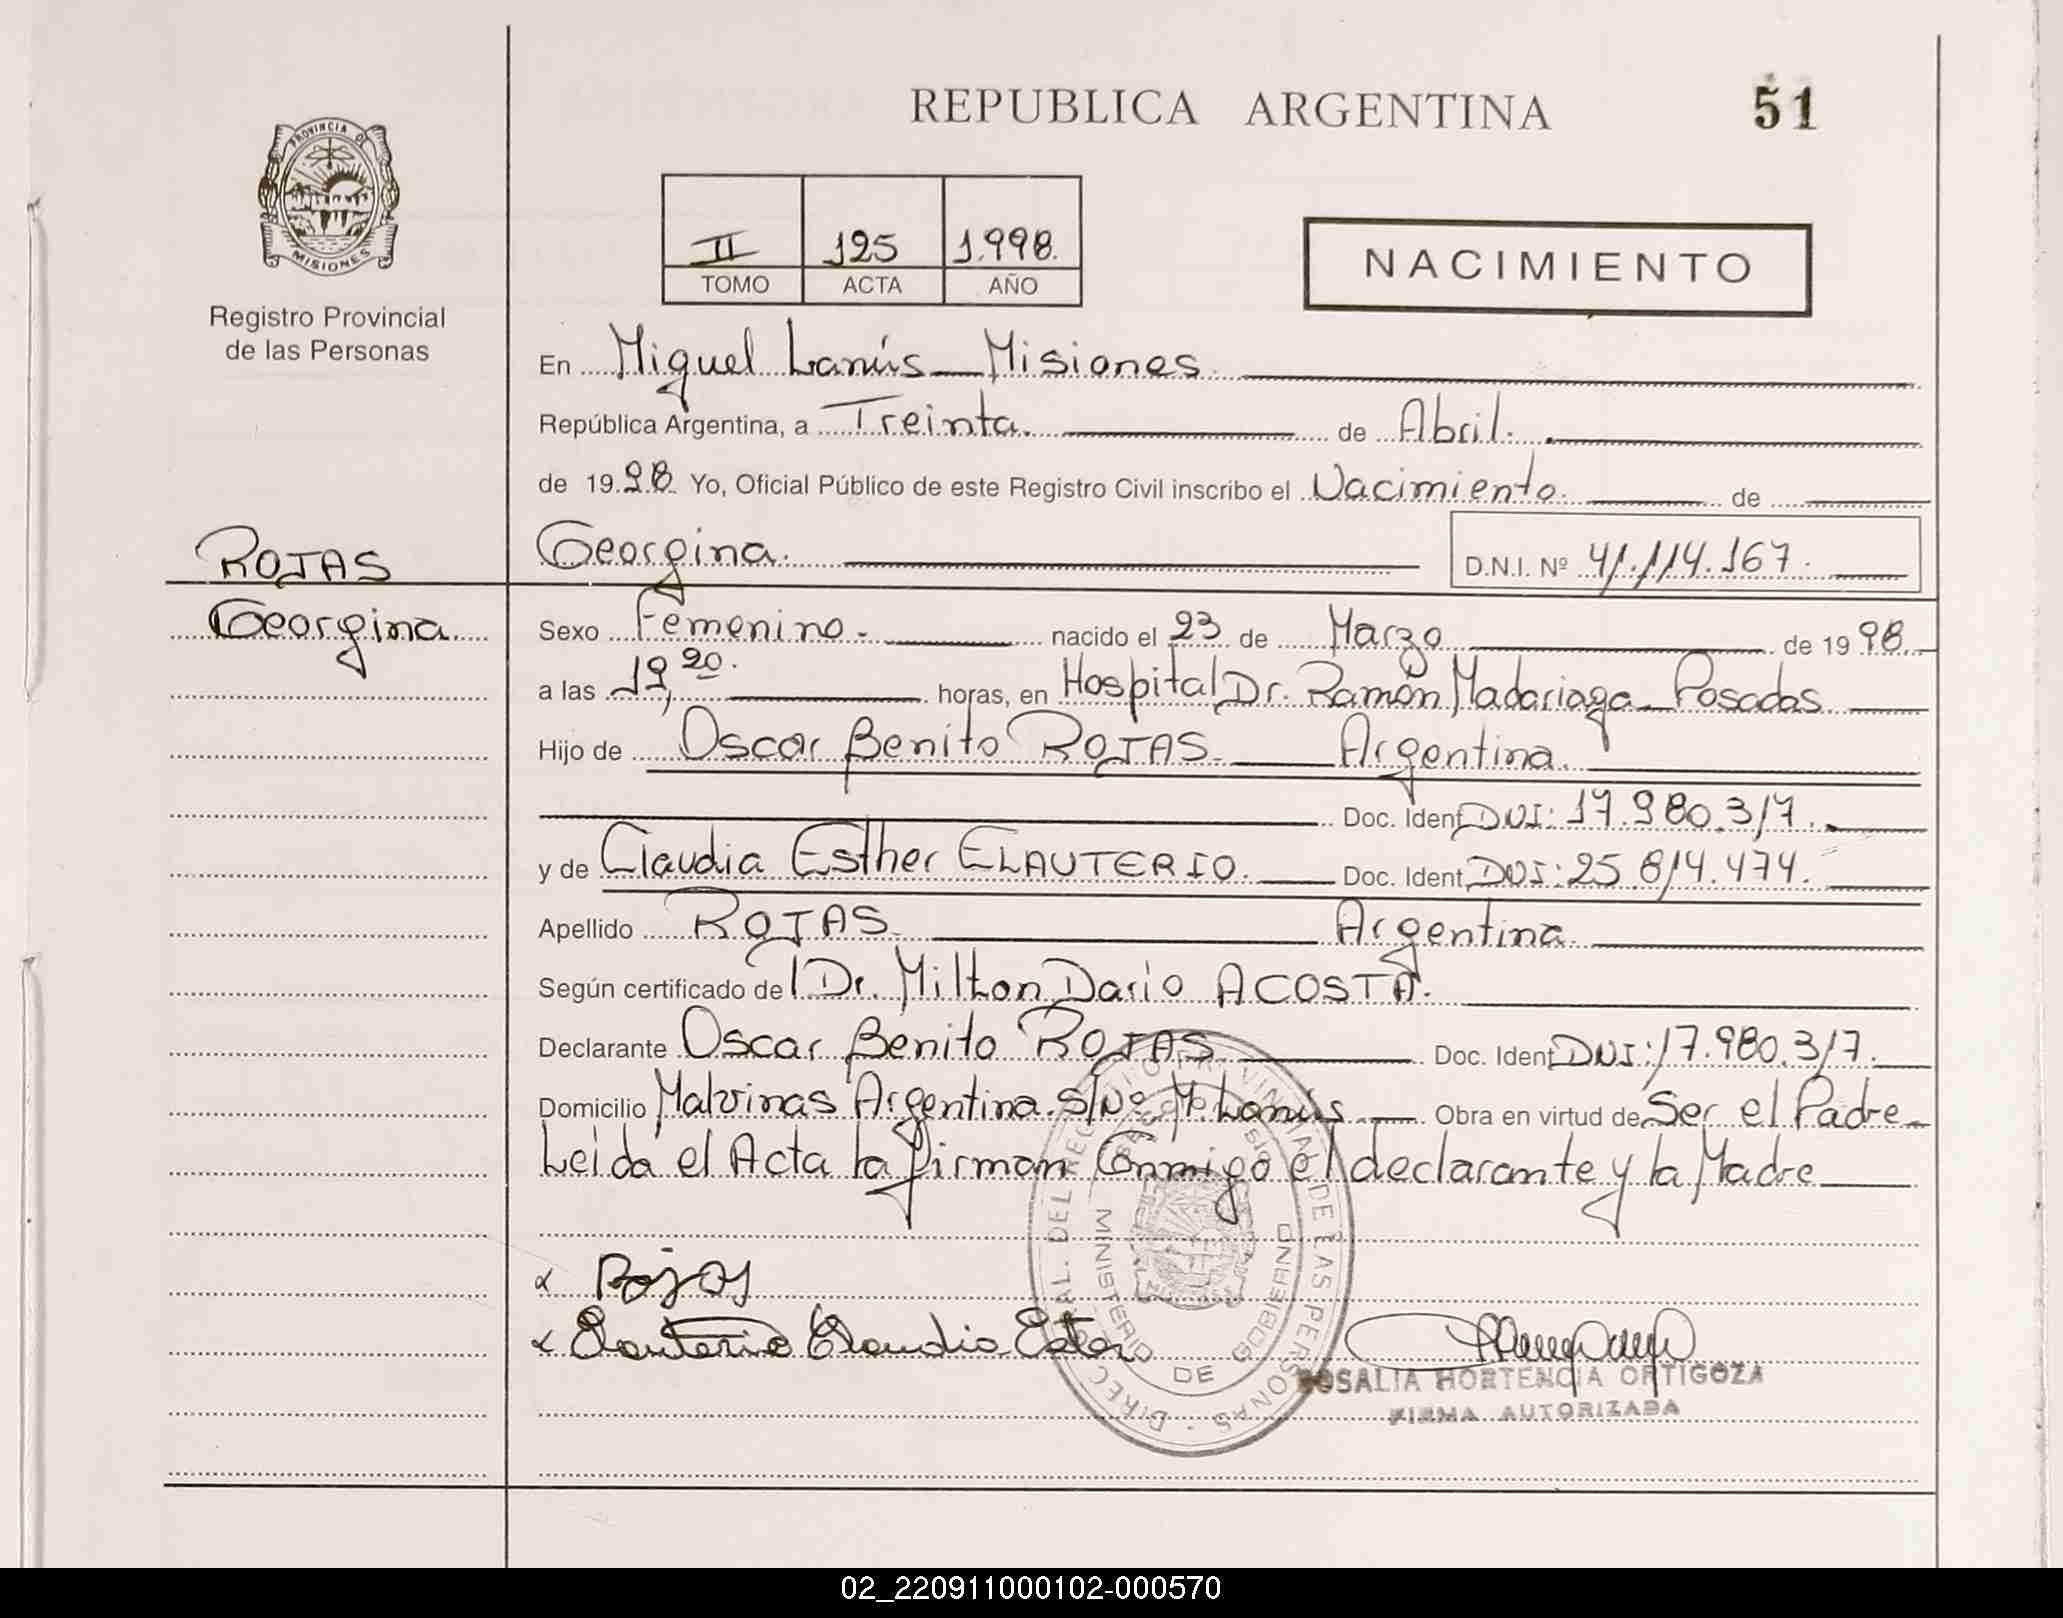 REPUBLICA ARGENTINA
51
PROVINCIA DE
MISIONES
Registro Provincial
de las Personas
II 125 1.998.
TOMO ACTA AÑO
NACIMIENTO
En Miguel Lanús - Misiones
República Argentina, a Treinta. de Abril.
de 1998 Yo, Oficial Público de este Registro Civil inscribo el Nacimiento. de
ROJAS
Georgina. D.N.I. Nº 41.114.167.
Georgina
Sexo Femenino. nacido el 23 de Marzo de 1998.
a las 19,20. horas, en Hospital Dr. Ramón Madariaga - Posadas
Hijo de Oscar Benito ROJAS. Argentina.
Doc. Ident. DNI: 17.980.317.
y de Claudia Esther ELAUTERIO. Doc. Ident. DNI: 25.814.474.
Apellido ROJAS Argentina
Según certificado de Dr. Milton Dario ACOSTA.
Declarante Oscar Benito ROJAS Doc. Ident. DNI: 17.980.317.
Domicilio Malvinas Argentina. S/Nº. M. Lanús Obra en virtud de Ser el Padre
Leida el Acta la firman Conmigo el declarante y la Madre
Rojas
Elauterio Claudia Ester
DIREC. GRAL. DEL REGISTRO PROVINCIAL DE LAS PERSONAS
MINISTERIO DE GOBIERNO
ROSALIA HORTENCIA ORTIGOZA
FIRMA AUTORIZADA
02_220911000102-000570